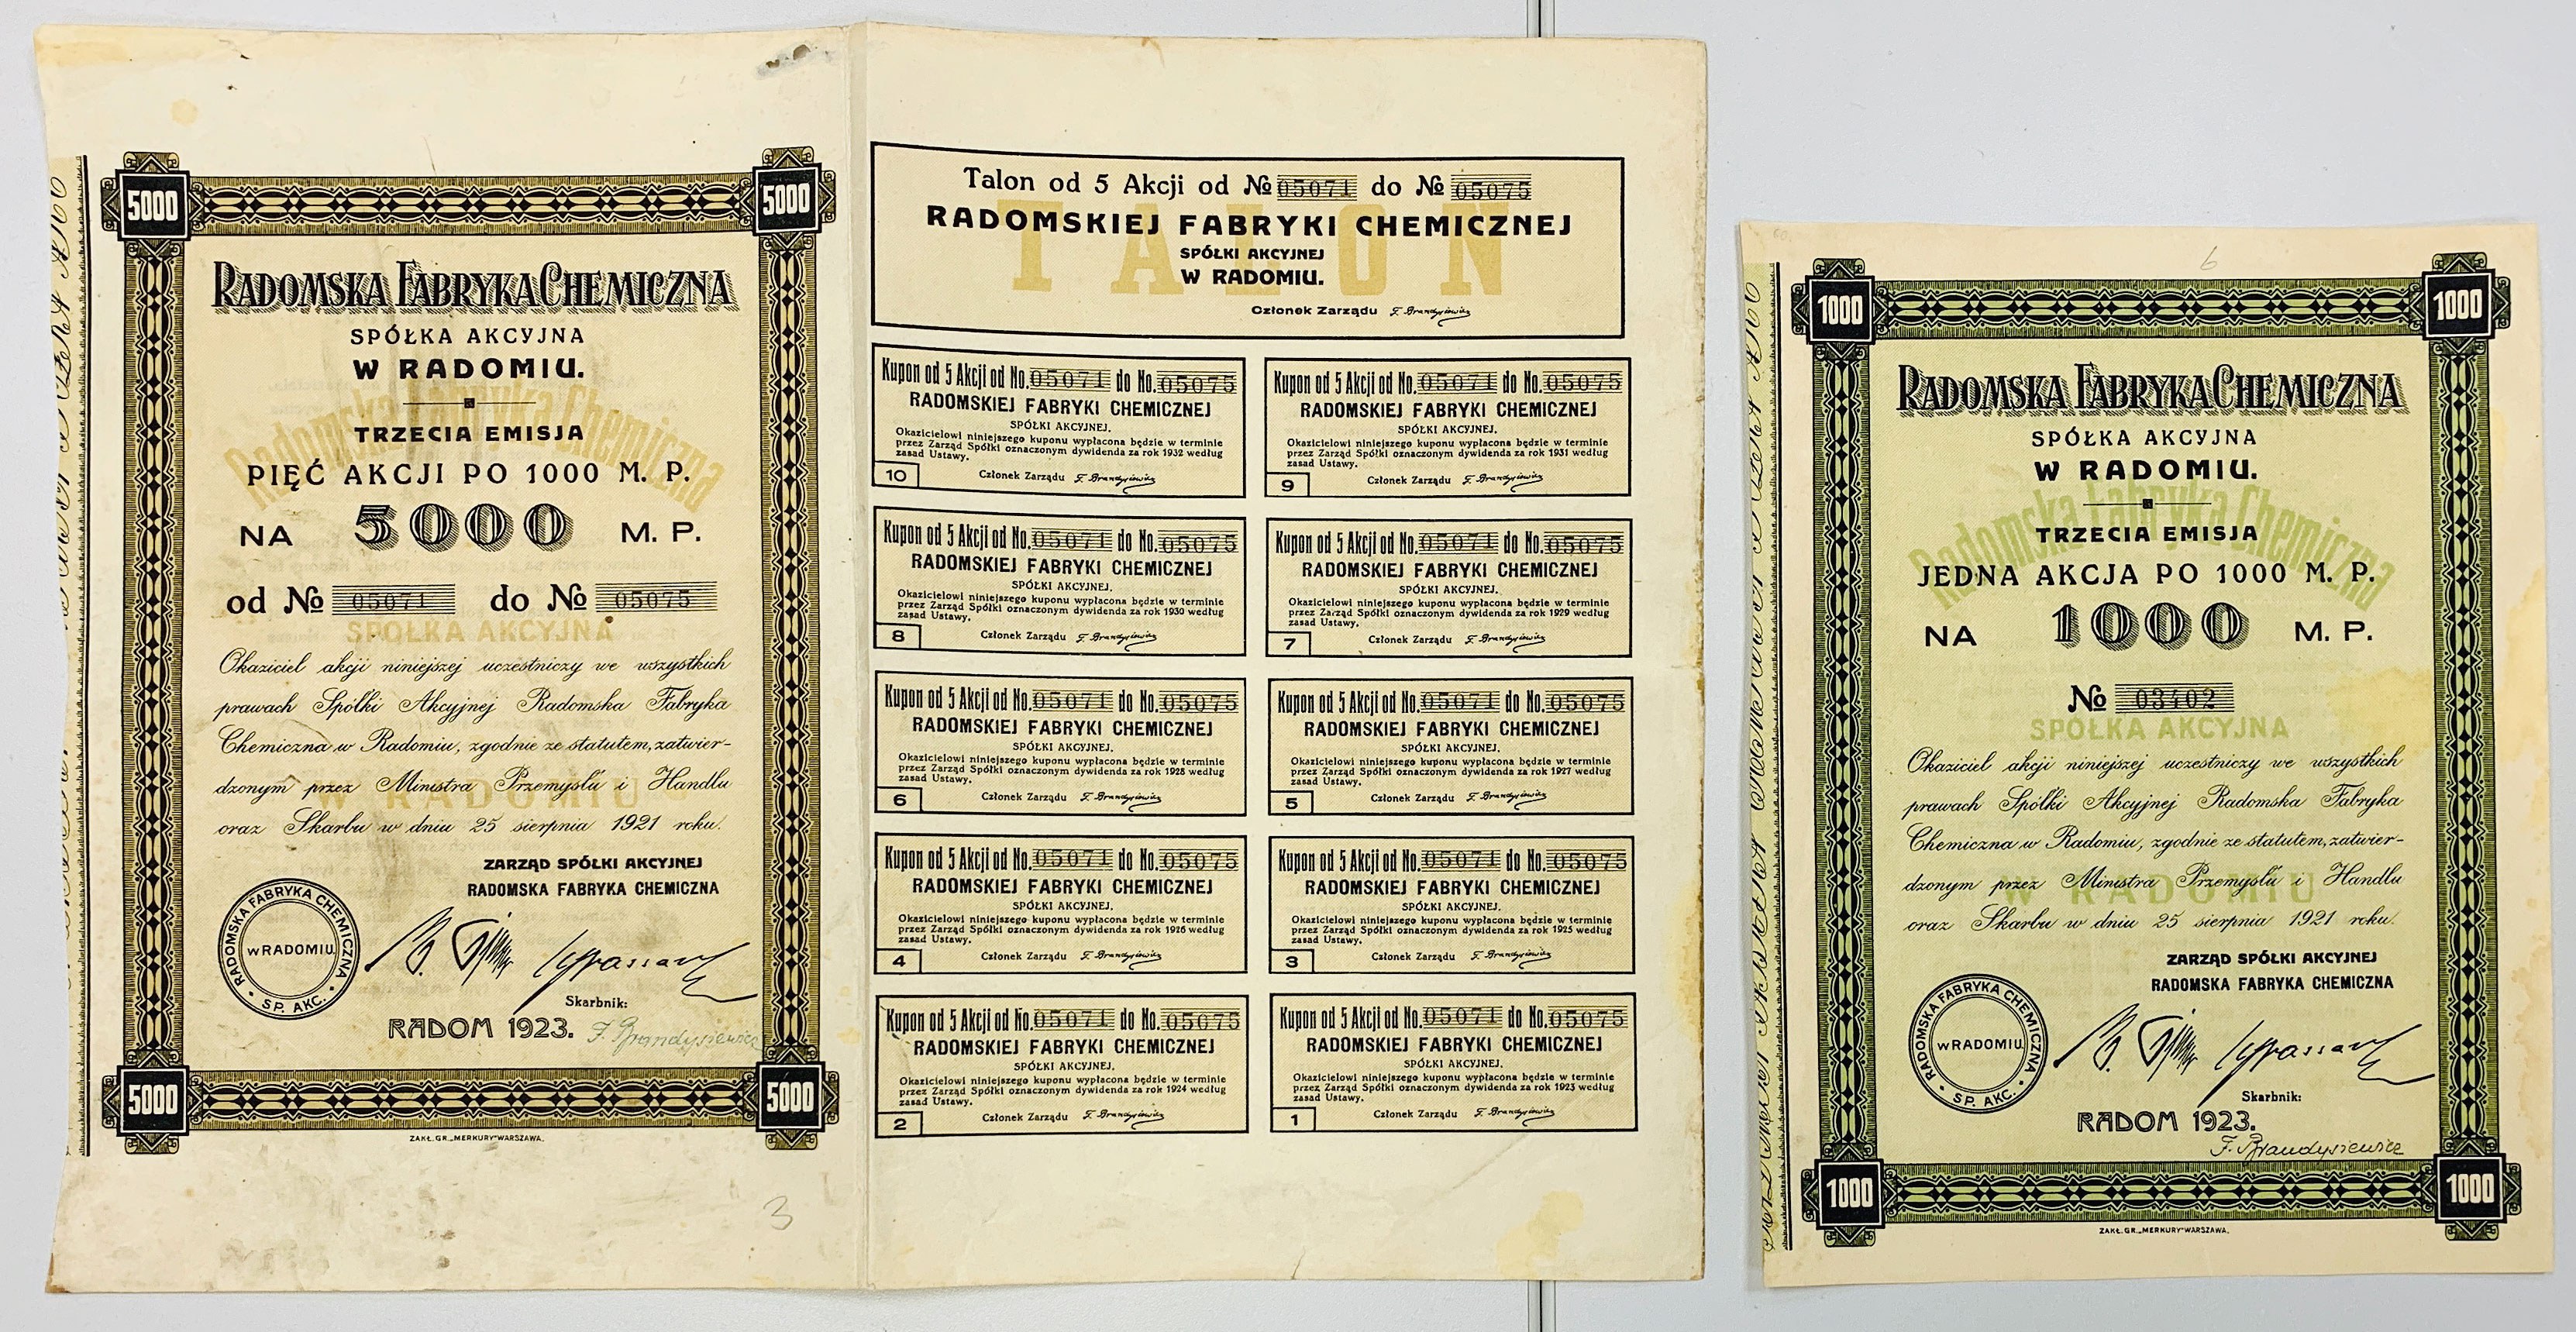 5000
5000
RADOMSKA FABRYKA CHEMICZNA
SPÓŁKA AKCYJNA
W RADOMIU.
TRZECIA EMISJA
PIĘĆ AKCJI PO 1000 M. P.
NA 5000 M. P.
od № 05071 do № 05075
Radomska Fabryka Chemiczna
SPÓŁKA AKCYJNA
W RADOMIU
Okaziciel akcji niniejszej uczestniczy we wszystkich
prawach Spółki Akcyjnej Radomska Fabryka
Chemiczna w Radomiu, zgodnie ze statutem, zatwier-
dzonym przez Ministra Przemysłu i Handlu
oraz Skarbu w dniu 25 sierpnia 1921 roku.
ZARZĄD SPÓŁKI AKCYJNEJ
RADOMSKA FABRYKA CHEMICZNA
RADOMSKA FABRYKA CHEMICZNA
w RADOMIU
SP. AKC.
Skarbnik:
RADOM 1923. F. Brandysiewicz
5000
5000
ZAKŁ. GR. „MERKURY" WARSZAWA.
3
Talon od 5 Akcji od № 05071 do № 05075
TALON
RADOMSKIEJ FABRYKI CHEMICZNEJ
SPÓŁKI AKCYJNEJ
W RADOMIU.
Członek Zarządu F. Brandysiewicz
Kupon od 5 Akcji od No. 05071 do No. 05075
RADOMSKIEJ FABRYKI CHEMICZNEJ
SPÓŁKI AKCYJNEJ.
Okazicielowi niniejszego kuponu wypłacona będzie w terminie
przez Zarząd Spółki oznaczonym dywidenda za rok 1932 według
zasad Ustawy.
10 Członek Zarządu F. Brandysiewicz
Kupon od 5 Akcji od No. 05071 do No. 05075
RADOMSKIEJ FABRYKI CHEMICZNEJ
SPÓŁKI AKCYJNEJ.
Okazicielowi niniejszego kuponu wypłacona będzie w terminie
przez Zarząd Spółki oznaczonym dywidenda za rok 1931 według
zasad Ustawy.
9 Członek Zarządu F. Brandysiewicz
Kupon od 5 Akcji od No. 05071 do No. 05075
RADOMSKIEJ FABRYKI CHEMICZNEJ
SPÓŁKI AKCYJNEJ.
Okazicielowi niniejszego kuponu wypłacona będzie w terminie
przez Zarząd Spółki oznaczonym dywidenda za rok 1930 według
zasad Ustawy.
8 Członek Zarządu F. Brandysiewicz
Kupon od 5 Akcji od No. 05071 do No. 05075
RADOMSKIEJ FABRYKI CHEMICZNEJ
SPÓŁKI AKCYJNEJ.
Okazicielowi niniejszego kuponu wypłacona będzie w terminie
przez Zarząd Spółki oznaczonym dywidenda za rok 1929 według
zasad Ustawy.
7 Członek Zarządu F. Brandysiewicz
Kupon od 5 Akcji od No. 05071 do No. 05075
RADOMSKIEJ FABRYKI CHEMICZNEJ
SPÓŁKI AKCYJNEJ.
Okazicielowi niniejszego kuponu wypłacona będzie w terminie
przez Zarząd Spółki oznaczonym dywidenda za rok 1928 według
zasad Ustawy.
6 Członek Zarządu F. Brandysiewicz
Kupon od 5 Akcji od No. 05071 do No. 05075
RADOMSKIEJ FABRYKI CHEMICZNEJ
SPÓŁKI AKCYJNEJ.
Okazicielowi niniejszego kuponu wypłacona będzie w terminie
przez Zarząd Spółki oznaczonym dywidenda za rok 1927 według
zasad Ustawy.
5 Członek Zarządu F. Brandysiewicz
Kupon od 5 Akcji od No. 05071 do No. 05075
RADOMSKIEJ FABRYKI CHEMICZNEJ
SPÓŁKI AKCYJNEJ.
Okazicielowi niniejszego kuponu wypłacona będzie w terminie
przez Zarząd Spółki oznaczonym dywidenda za rok 1926 według
zasad Ustawy.
4 Członek Zarządu F. Brandysiewicz
Kupon od 5 Akcji od No. 05071 do No. 05075
RADOMSKIEJ FABRYKI CHEMICZNEJ
SPÓŁKI AKCYJNEJ.
Okazicielowi niniejszego kuponu wypłacona będzie w terminie
przez Zarząd Spółki oznaczonym dywidenda za rok 1925 według
zasad Ustawy.
3 Członek Zarządu F. Brandysiewicz
Kupon od 5 Akcji od No. 05071 do No. 05075
RADOMSKIEJ FABRYKI CHEMICZNEJ
SPÓŁKI AKCYJNEJ.
Okazicielowi niniejszego kuponu wypłacona będzie w terminie
przez Zarząd Spółki oznaczonym dywidenda za rok 1924 według
zasad Ustawy.
2 Członek Zarządu F. Brandysiewicz
Kupon od 5 Akcji od No. 05071 do No. 05075
RADOMSKIEJ FABRYKI CHEMICZNEJ
SPÓŁKI AKCYJNEJ.
Okazicielowi niniejszego kuponu wypłacona będzie w terminie
przez Zarząd Spółki oznaczonym dywidenda za rok 1923 według
zasad Ustawy.
1 Członek Zarządu F. Brandysiewicz
6
1000
1000
RADOMSKA FABRYKA CHEMICZNA
SPÓŁKA AKCYJNA
W RADOMIU.
TRZECIA EMISJA
JEDNA AKCJA PO 1000 M. P.
NA 1000 M. P.
№ 03402
Radomska Fabryka Chemiczna
SPÓŁKA AKCYJNA
W RADOMIU
Okaziciel akcji niniejszej uczestniczy we wszystkich
prawach Spółki Akcyjnej Radomska Fabryka
Chemiczna w Radomiu, zgodnie ze statutem, zatwier-
dzonym przez Ministra Przemysłu i Handlu
oraz Skarbu w dniu 25 sierpnia 1921 roku.
ZARZĄD SPÓŁKI AKCYJNEJ
RADOMSKA FABRYKA CHEMICZNA
RADOMSKA FABRYKA CHEMICZNA
w RADOMIU
SP. AKC.
Skarbnik:
RADOM 1923.
F. Brandysiewicz
1000
1000
ZAKŁ. GR. „MERKURY" WARSZAWA.